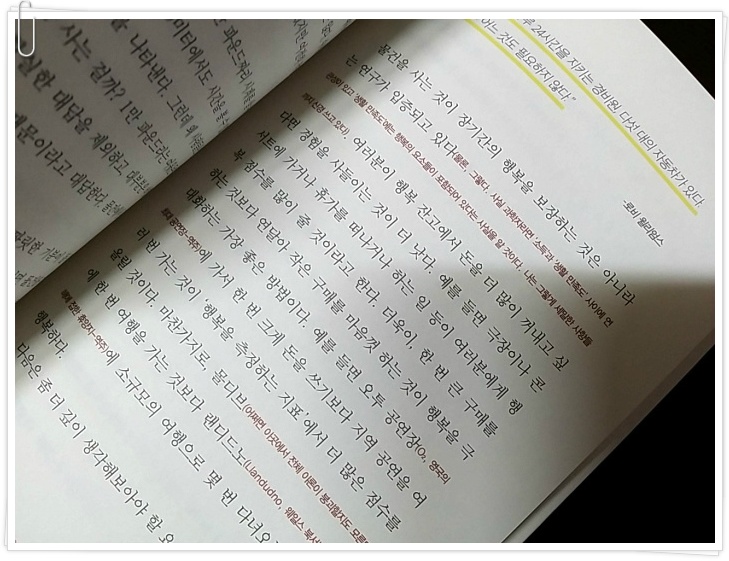 를 나타낸다. 그런데 왜
사는 걸까? 1만 파운드는
실한 대답을 제외하고, 대부분
때문이라고 대답한다.
24시간을 지키는 경비원, 다섯 대의 자동차가 있다.
어느 것도 필요하지 않다."
-로비 윌리엄스
물건을 사는 것이 장기간의 행복을 보장하는 것은 아니라
는 연구가 입증되고 있다(물론, 그렇다. 사실 과학자라면 '소득과 '생활 만족도' 사이에 연
관성이 있고 '생활 만족도'에는 행복의 요소들이 포함되어 있다는 사실을 알 것이다. 나는 그렇게 세밀한 사항들
까지 신경 쓰고 있다). 여러분이 행복 잔고에서 돈을 더 많이 꺼내고 싶
다면 경험을 사들이는 것이 더 낫다. 예를 들면 극장이나 콘
서트에 가거나 휴가를 떠나거나 하는 일 등이 여러분에게 행
복 점수를 많이 줄 것이라고 한다. 더욱이, 한 번 큰 구매를
하는 것보다 연달아 작은 구매를 마음껏 하는 것이 행복을 극
대화하는 가장 좋은 방법이다. 예를 들면 오투 공연장(O₂, 영국의
최대 공연장-역주)에 가서 한 번 크게 돈을 쓰기보다 지역 공연을 여
러 번 가는 것이 '행복을 측정하는 지표'에서 더 많은 점수를
올릴 것이다. 마찬가지로, 몰디브(어쩌면 이곳에서 전체 이론이 붕괴할지도 모른
에 한 번 여행을 가는 것보다 랜디드노(Llandudno, 웨일스 북서
휴양지-역주)에 소규모의 여행으로 몇 번 다녀오
행복하다.
다음은 좀 더 깊이 생각해보아야 할